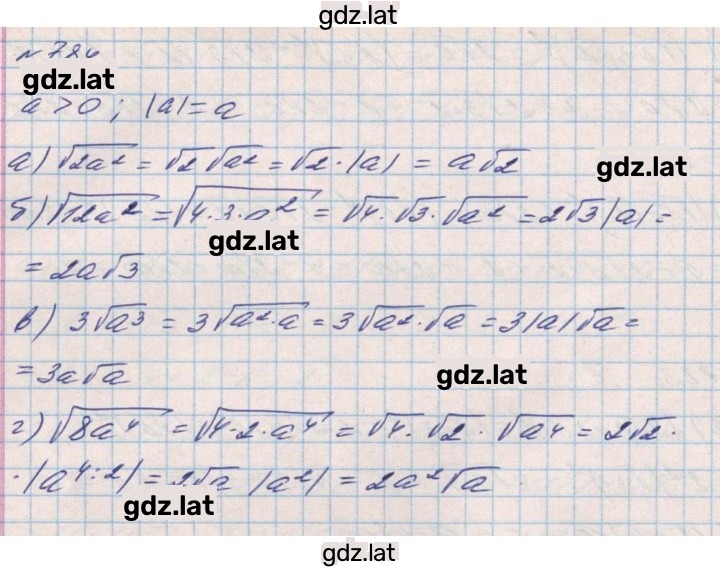 gdz.lat
№ 726
gdz.lat
a > 0 ; |a| = a
а) √2a² = √2 √a² = √2 · |a| = a√2
gdz.lat
б) √12a² = √4·3·a² = √4 · √3 · √a² = 2√3|a| =
gdz.lat
= 2a√3
в) 3√a³ = 3√a²·a = 3√a² · √a = 3|a|√a =
= 3a√a
gdz.lat
г) √8a⁴ = √4·2·a⁴ = √4 · √2 · √a⁴ = 2√2 ·
· |a⁴:²| = 2√a |a²| = 2a²√a
gdz.lat
gdz.lat